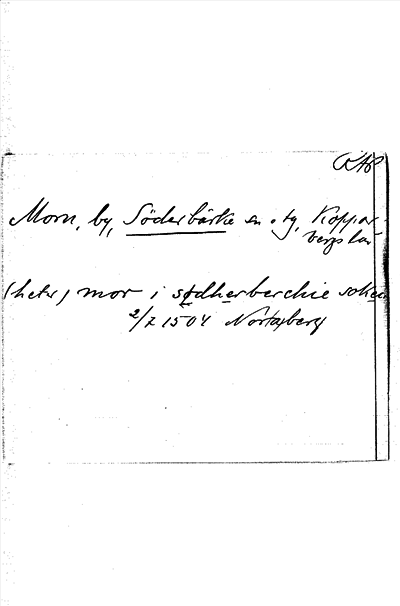 RAp
Morn, by, Söderbärke sn o. tg, Koppar-
bergs län
(heter) mor i sødherberchie soken
2/7 1504 Norraberg